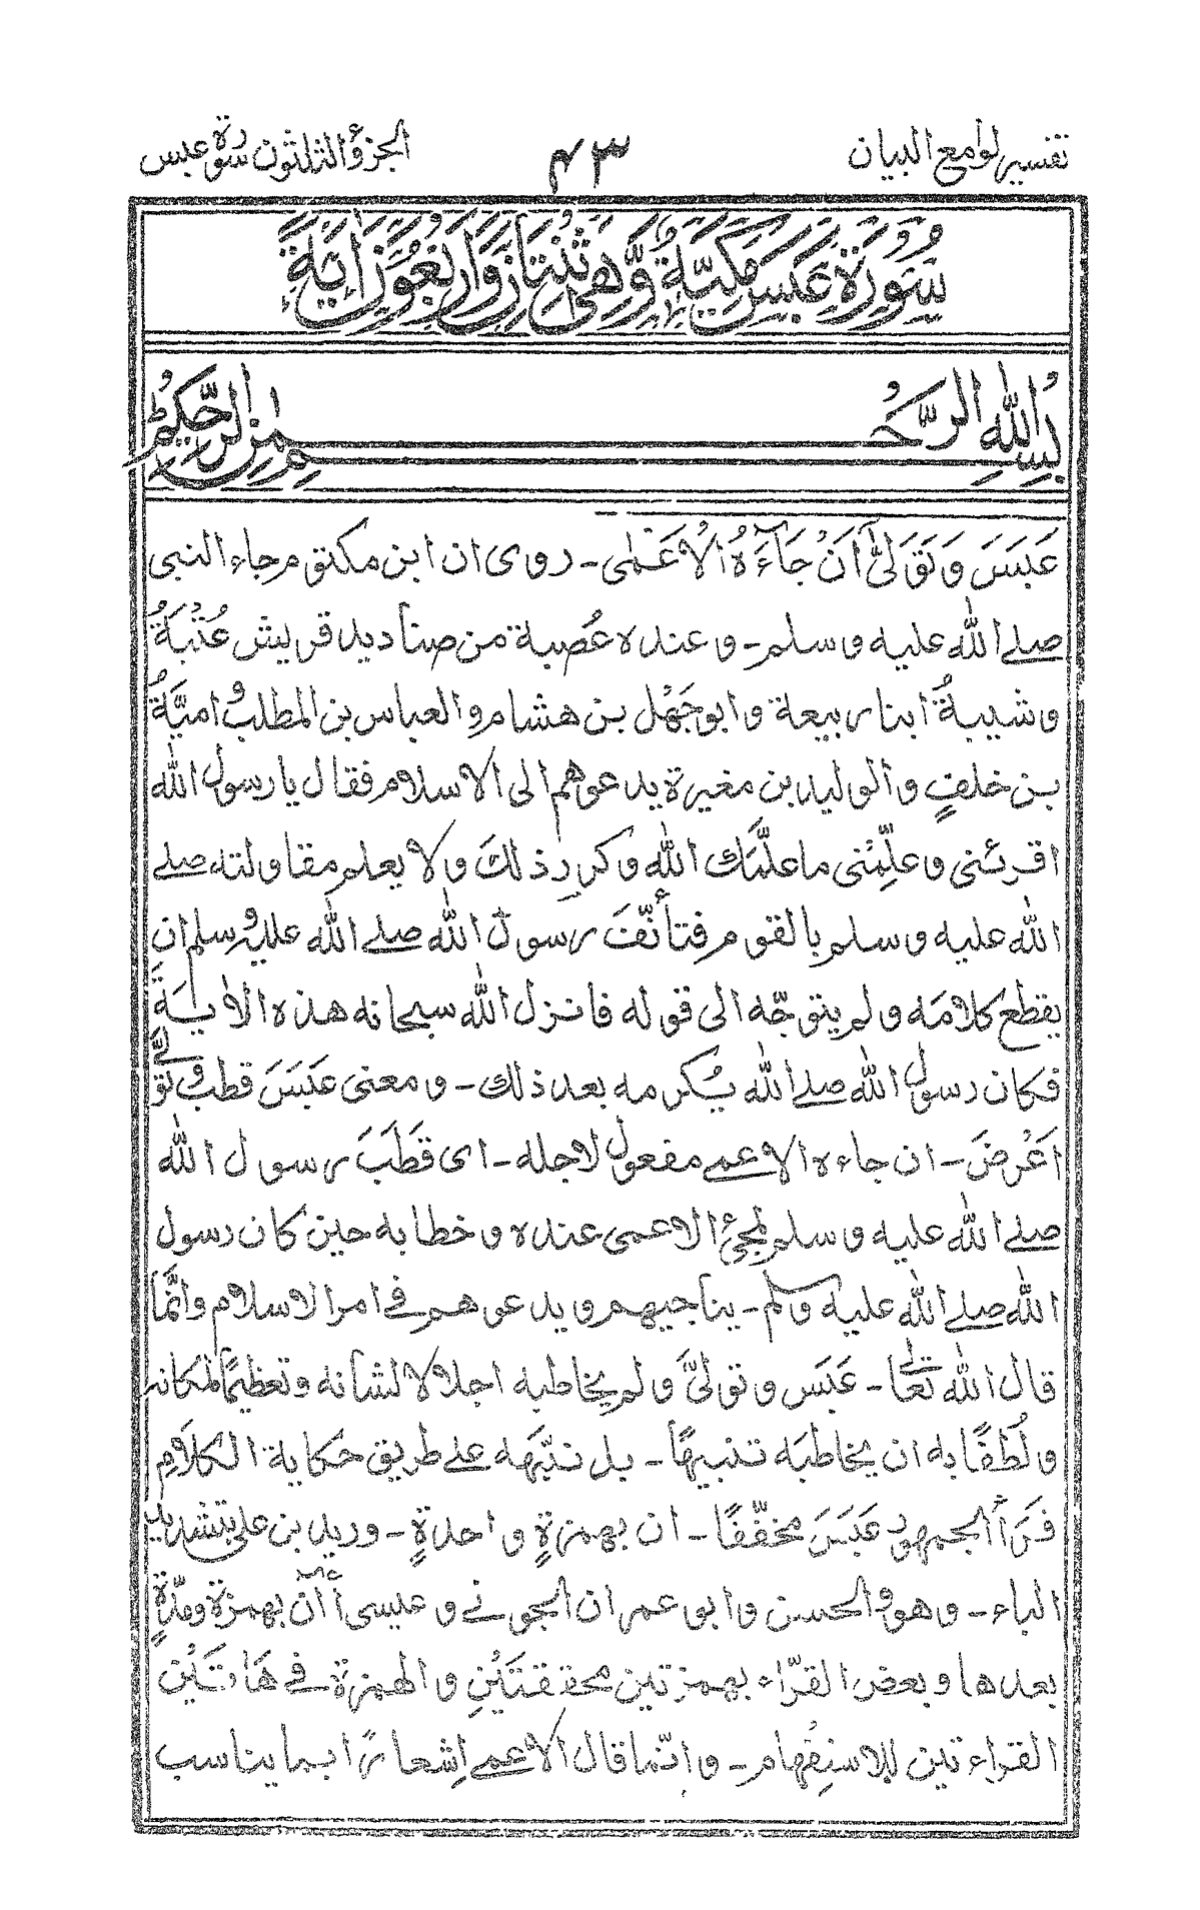 تفسير لوامع البيان
٤٣
الجزء الثلثون سورة عبس
سُوْرَةُ عَبَسَ مَكِّيَّةٌ وَّهِيَ ثْنَتَانِ وَاَرْبَعُوْنَ اٰيَةً
بِسْمِ اللهِ الرَّحْمٰنِ الرَّحِيْمِ
عَبَسَ وَتَوَلّٰى اَنْ جَآءَهُ الْاَعْمٰى - روى ان ابن مكتوم جاء النبى
صلے الله عليه وسلم - وعنده عُصبة من صناديد قريش عُتْبَةُ
وشيبةُ ابنا ربيعة وابو جَهْل بن هشام والعباس بن المطلب واميَّةُ
بن خلفٍ والوليد بن مغيرة يدعوهم الى الاسلام فقال يا رسول الله
اقرئنى وعلِّمْنى ما علَّمك الله وكرر ذلك ولا يعلم مقاولته صلے
الله عليه وسلم بالقوم فتأنّفَ رسول الله صلے الله عليه وسلم ان
يقطع كلامَه ولم يتوجّه الى قوله فانزل الله سبحانه هذه الاٰيةَ
فكان رسول الله صلے الله يُكرمه بعد ذلك - ومعنى عَبَسَ قطب وتَوَلّٰى
اَعْرضَ - ان جاءه الاعمے مفعول لاجله - اى قَطَبَ رسول الله
صلے الله عليه وسلم لمجئ الاعمى عنده وخطابه حين كان رسول
الله صلے الله عليه وسلم - يناجيهم ويدعوهم فے امر الاسلام وانَّما
قال الله تعالٰى - عَبَس وتولّٰى ولم يخاطبه اجلالا لشانه وتعظيمًا لمكانه
ولُطفًا به ان يخاطبَه تنبيهًا - بل نبّهه علے طريق حكاية الكلامِ
قَرَأَ الجمهور عَبَسَ مخفّفًا - ان بهمزةٍ واحدةٍ - وزيد بن على بتشديد
الباء - وهو والحسن وابو عمران الجونے وعيسى أٰان بهمزة ومدّةٍ
بعدها وبعض القرّاء بهمزتين محققتَيْنِ والهمزة فے هَاتَيْن
القراءتين للاستِفْهام - وانّما قال الاعمے اِشعارًا بما يناسب